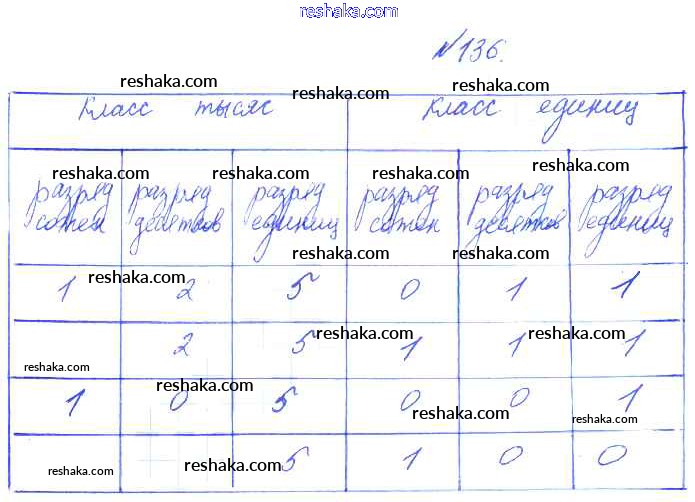 reshaka.com
№136.
reshaka.com reshaka.com reshaka.com
Класс тысяч Класс единиц
reshaka.com reshaka.com reshaka.com
разряд разряд разряд разряд разряд разряд
сотен десятков единиц сотен десятков единиц
reshaka.com reshaka.com reshaka.com
1 2 5 0 1 1
reshaka.com reshaka.com reshaka.com
2 5 1 1 1
reshaka.com reshaka.com reshaka.com
1 0 5 0 0 1
reshaka.com reshaka.com reshaka.com
5 1 0 0